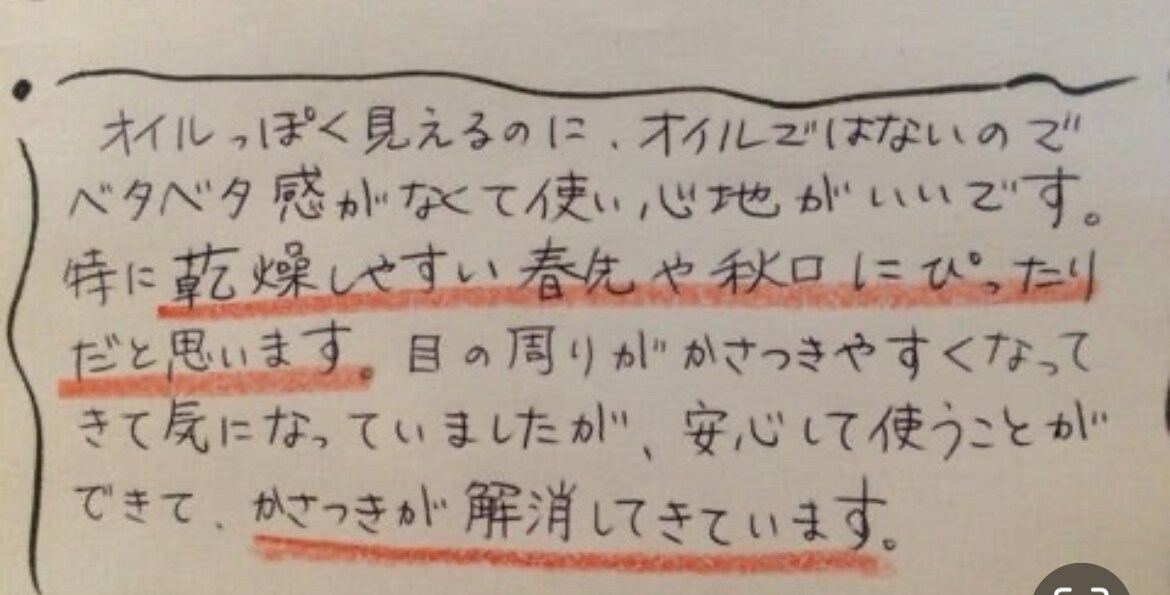 オイルっぽく見えるのに、オイルではないので
ベタベタ感がなくて使い心地がいいです。
特に乾燥しやすい春先や秋口にぴったり
だと思います。目の周りがかさつきやすくなって
きて気になっていましたが、安心して使うことが
できて、かさつきが解消してきています。